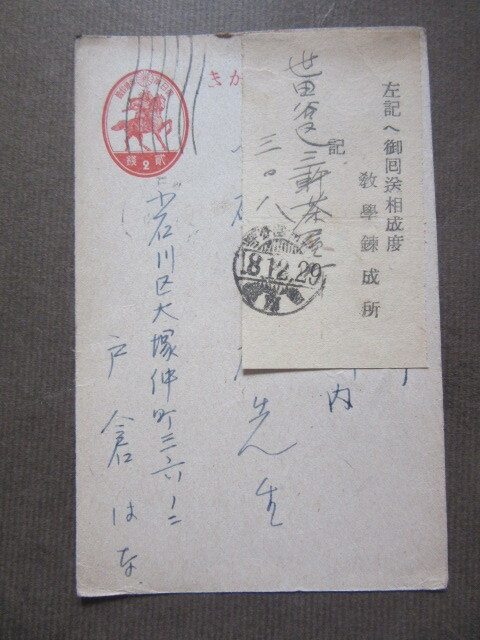 左記へ御囘送相成度
敎學錬成所
記
世田谷區三軒茶屋
三〇八
18.12.29
きが
貳 2 錢
内
先生
小石川区大塚仲町三六ノ二
戸倉はな